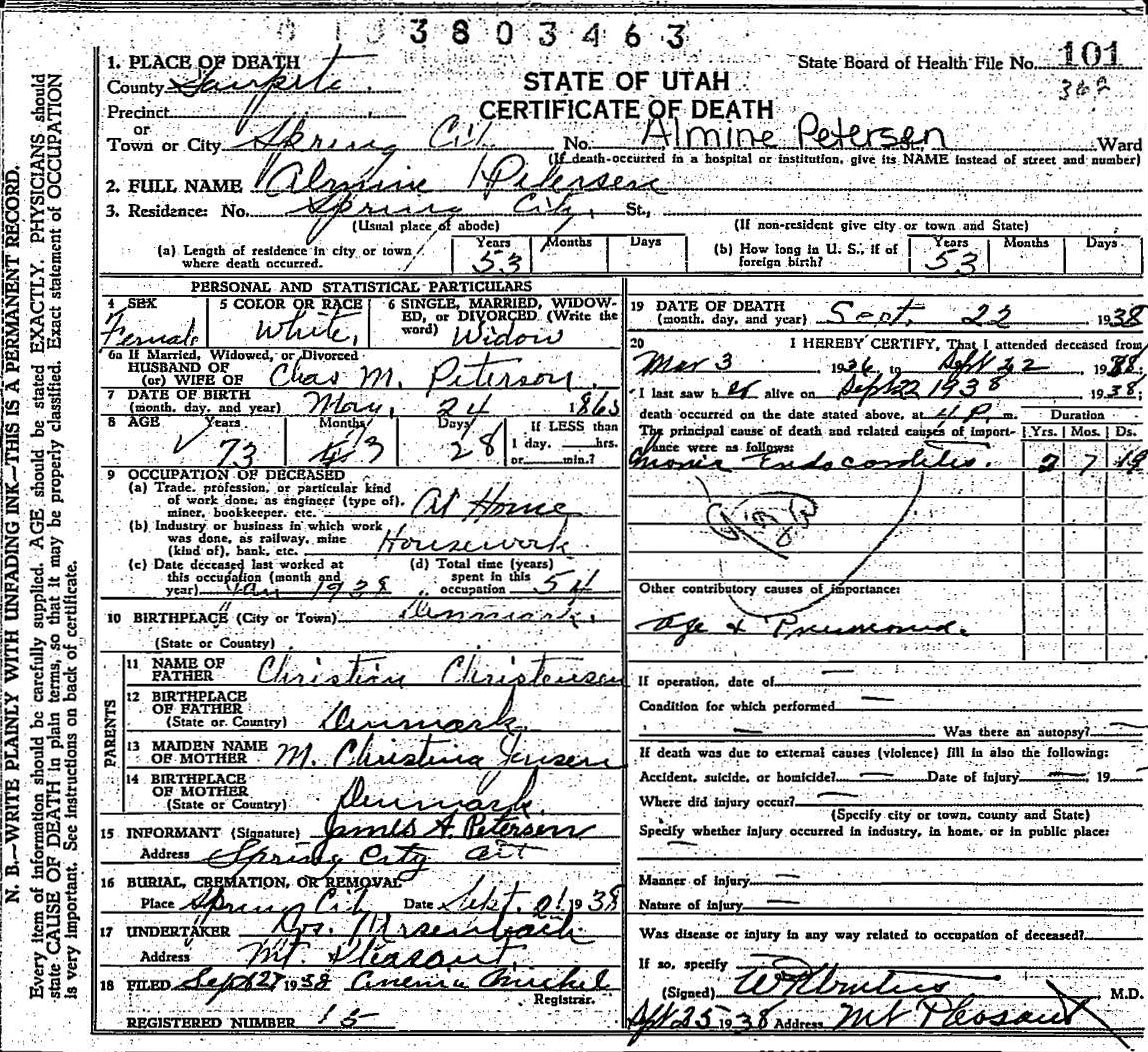 3803463
1. PLACE OF DEATH
State Board of Health File No. 101
362
County Sanpete
STATE OF UTAH
Precinct
CERTIFICATE OF DEATH
or
Town or City Spring City No. Almine Petersen Ward
(If death occurred in a hospital or institution, give its NAME instead of street and number)
2. FULL NAME Almine Petersen
3. Residence: No. Spring City, St.,
(Usual place of abode) (If non-resident give city or town and State)
(a) Length of residence in city or town where death occurred. Years 53 Months Days
(b) How long in U. S., if of foreign birth? Years 53 Months Days
PERSONAL AND STATISTICAL PARTICULARS
4 SEX Female
5 COLOR OR RACE White,
6 SINGLE, MARRIED, WIDOWED, or DIVORCED (Write the word) Widow
6a If Married, Widowed, or Divorced
HUSBAND OF
(or) WIFE OF Chas M. Peterson.
7 DATE OF BIRTH
(month, day, and year) May, 24 1865
8 AGE Years 73 Months 3 Days 28 If LESS than
1 day, hrs.
or min.?
9 OCCUPATION OF DECEASED
(a) Trade, profession, or particular kind
of work done, as engineer (type of),
miner, bookkeeper, etc. At Home
(b) Industry or business in which work
was done, as railway, mine
(kind of), bank, etc. Housework
(c) Date deceased last worked at
this occupation (month and
year) Jan 1938
(d) Total time (years)
spent in this
occupation 54
10 BIRTHPLACE (City or Town) Denmark.
(State or Country)
PARENTS
11 NAME OF
FATHER Christian Christensen
12 BIRTHPLACE
OF FATHER
(State or Country) Denmark
13 MAIDEN NAME
OF MOTHER M. Christina Jensen
14 BIRTHPLACE
OF MOTHER
(State or Country) Denmark.
15 INFORMANT (Signature) James A. Petersen
Address Spring City
16 BURIAL, CREMATION, OR REMOVAL
Place Spring City Date Sept. 1938
17 UNDERTAKER
Address Mt. Pleasant.
18 FILED Sept 27 1938
Registrar.
REGISTERED NUMBER 15
19 DATE OF DEATH
(month, day, and year) Sept. 22 1938
20 I HEREBY CERTIFY, That I attended deceased from
Mar 3 1936, to Sept 22 1938.
I last saw her alive on Sept 22 1938 1938;
death occurred on the date stated above, at 4 P. m. Duration
The principal cause of death and related causes of importance were as follows: Yrs. Mos. Ds.
Endocarditis. 2 7 19
Other contributory causes of importance:
Age & Pneumonia.
If operation, date of
Condition for which performed
Was there an autopsy?
If death was due to external causes (violence) fill in also the following:
Accident, suicide, or homicide? Date of injury 19
Where did injury occur?
(Specify city or town, county and State)
Specify whether injury occurred in industry, in home, or in public place:
Manner of injury
Nature of injury
Was disease or injury in any way related to occupation of deceased?
If so, specify
(Signed) M.D.
Sept 25 1938 Address Mt Pleasant
N. B.—WRITE PLAINLY WITH UNFADING INK—THIS IS A PERMANENT RECORD.
Every item of information should be carefully supplied. AGE should be stated EXACTLY. PHYSICIANS should
state CAUSE OF DEATH in plain terms, so that it may be properly classified. Exact statement of OCCUPATION
is very important. See instructions on back of certificate.